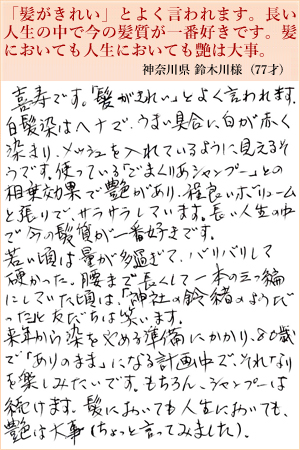 「髪がきれい」とよく言われます。長い
人生の中で今の髪質が一番好きです。髪
においても人生においても艶は大事。
神奈川県 鈴木川様（77才）
喜寿です。「髪がきれい」とよく言われます。
白髪染はヘナで、うまい具合に白が赤く
染まり、メッシュを入れているように見えるそ
うです。使っている「ごまくりあシャンプー」との
相乗効果で艶があり、程良いボリューム
と張りで、サラサラしています。長い人生の中
で今の髪質が一番好きです。
若い頃は量が多過ぎて、バリバリして
硬かった。腰まで長くして一本の三つ編
にしていた頃は、「神社の鈴緒のようだ
った」と友だちは笑います。
来年から染をやめる準備にかかり、80歳
で「ありのまま」になる計画中で、それなり
を楽しみたいです。もちろん、シャンプーは
続けます。髪においても人生においても、
艶は大事（ちょっと言ってみました）。